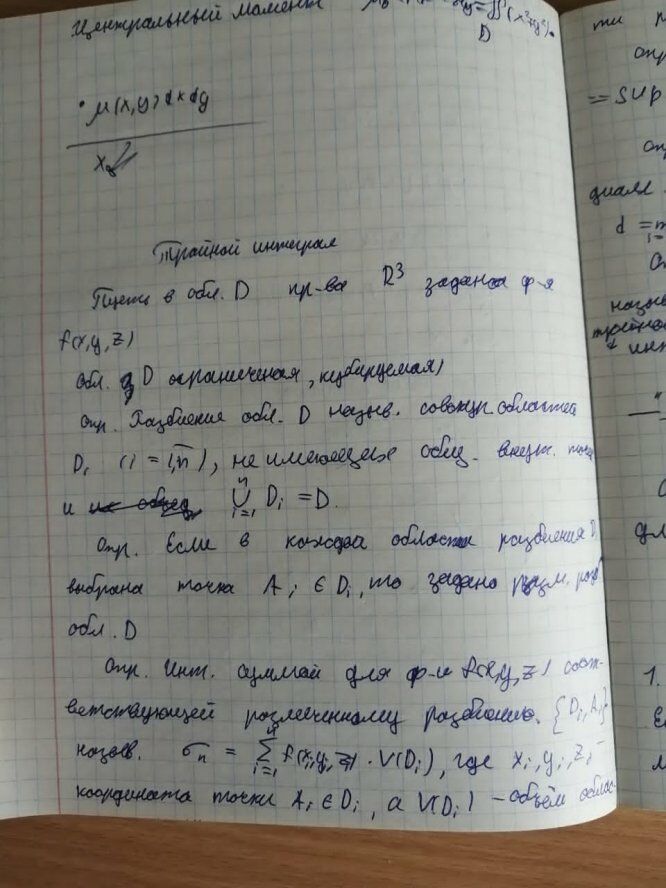 Центральный момент
D
μ(x,y)dxdy
Тройной интеграл
Пусть в обл. D пр-ва R³ задана ф-я
f(x,y,z)
Обл. D ограниченная, кубируемая)
Опр. Разбиения обл. D назыв. совокуп. областей
Dᵢ (i = 1,n̅), не имеющие общ. внутр. точек
и ⋃ᵢ₌₁ⁿ Dᵢ = D.
Опр. Если в каждой области разбиения Dᵢ
выбрана точка Aᵢ ∈ Dᵢ, то задано разм. разб
обл. D
Опр. Инт. суммой для ф-и f(x,y,z) соот-
ветствующей размеченному разбиению {Dᵢ, Aᵢ}
назыв. σₙ = ∑ᵢ₌₁ⁿ f(xᵢ,yᵢ,zᵢ) · V(Dᵢ), где xᵢ, yᵢ, zᵢ -
координата точки Aᵢ ∈ Dᵢ, а V(Dᵢ) - объём облас-
ти
опр
= sup
диам
d =
назыв
1.